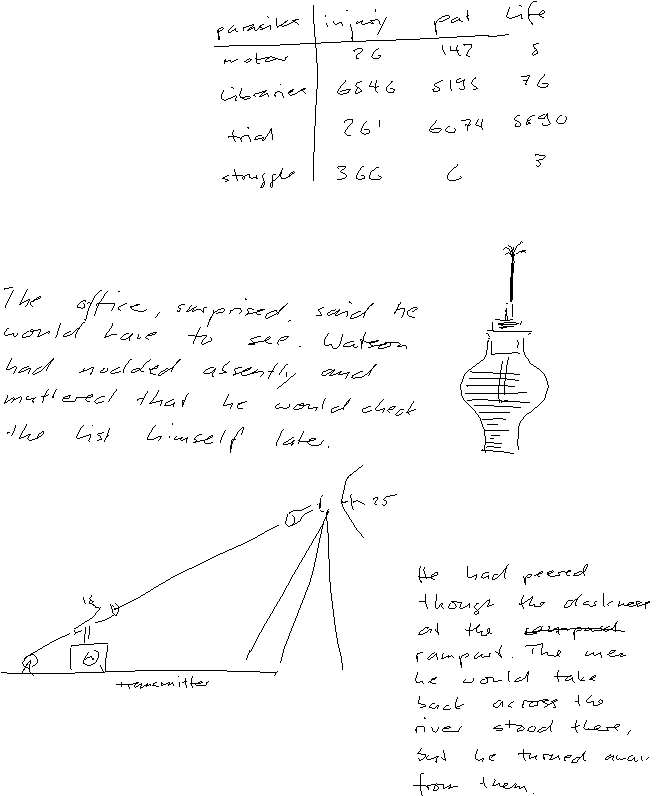 parasites injury pat life
motor 26 142 8
libraries 6846 5195 76
trial 261 6074 8890
struggle 366 6 3
The office, surprised, said he
would have to see. Watson
had nodded absently and
muttered that he would check
the list himself later.
25
18
transmitter
He had peered
though the darkness
at the rampart
rampart. The men
he would take
back across the
river stood there,
but he turned away
from them.